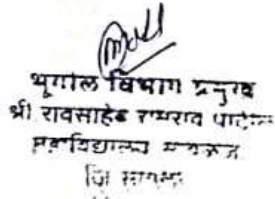 भूगोल विभाग प्रमुख
श्री रावसाहेब रामराव पाटील
महाविद्यालय
जि सांगली